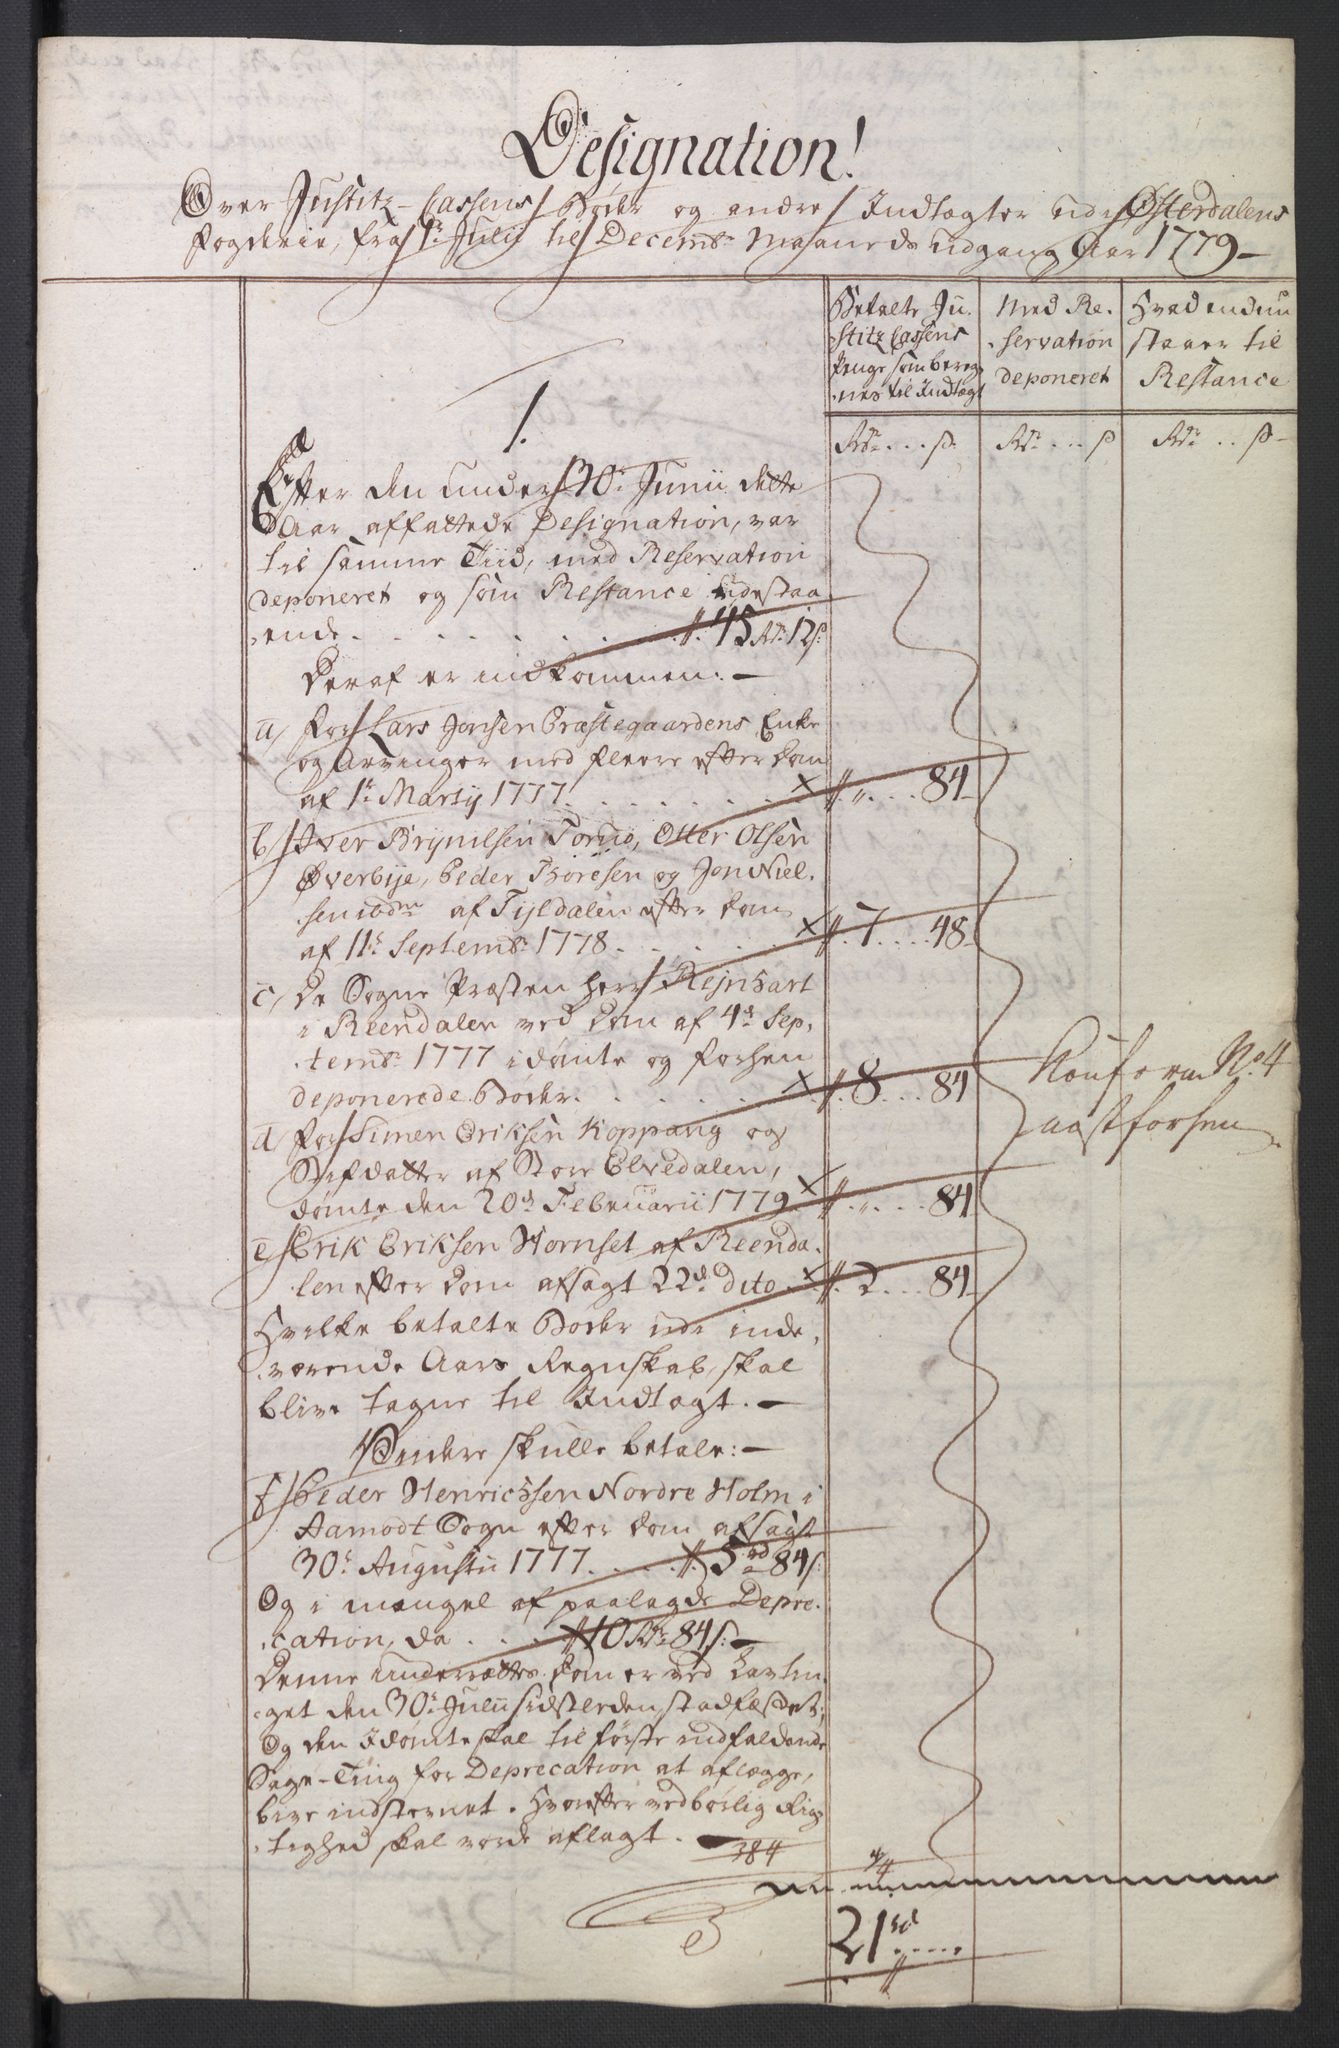 Designation!
Over Justitz-Cassens Bøder og andre Indtægter udi Østerdalens
Fogderie, fra 1te Julij til Decembr Maaneds udgang Aar 1779
Betalte Ju-
stitz Cassens
Penge som bereg-
nes til Indtægt
Med Re-
servation
deponeret
Hvad endnu
staaer til
Restance
Rdr ... s.
Rdr ... s
Rdr .. s
1.
Efter den under 30te Junii dette
Aar affattede Designation, var
til samme Tiid, med Reservation
deponeret og som Restance udestaa
ende . . . . . . 45 Rdr 12 s.
Deraf er indkommen:
a/ for Lars Jonsen Præstegaardens Enke
og Arvinger med fleere efter Dom
af 1te Martij 1777 . . . . . . " . . . 84
b/ Iver Brynilsen Torud, Otter Olsen
Øverbye, Peder Thoresen og Jon Niel-
sen ibdm af Tyldalen efter Dom
af 11te Septembr 1778 . . . . . . 7 . . . 48
c/ De Sogne Præsten Herr Rejnhart
i Reendalen ved Dom af 4de Sep-
tembr 1777 idømte og forhen
deponerede Bøder . . . . . . 8 . . . 84
d/ for Simen Eriksen Koppang og
Stifdatter af Store Elvedalen,
dømte den 20de Februarii 1779 " . . . 84
e/ Erik Eriksen Hornset af Reenda-
len efter Dom afsagt 22de dito . . 2 . . . 84
Hvilke betalte Bøder udi inde-
værende Aars Regnskab, skal
blive tagne til Indtægt.
Videre skulle betale:
f/ Peder Henrichsen Nordre Holm i
Aamodt Sogn efter Dom afsagt
30te Augustii 1777 . . . . . 5 rd 84 s:
Og i mangel af paalagde Depre-
cation, da . . . 10 Rdr 84 s:
Denne Underrættes Dom er ved Lavtin-
get den 30te Julii sidstleden stadfæstet,
Og den Idømte skal til første indfaldende
Sage-Ting for Deprecation at aflægge,
bive indstevnet. Hvorefter vedbørlig Rig-
tighed skal vorde aflagt.
384
4
21 rd . . . .
Konform No. 4
aastforhen